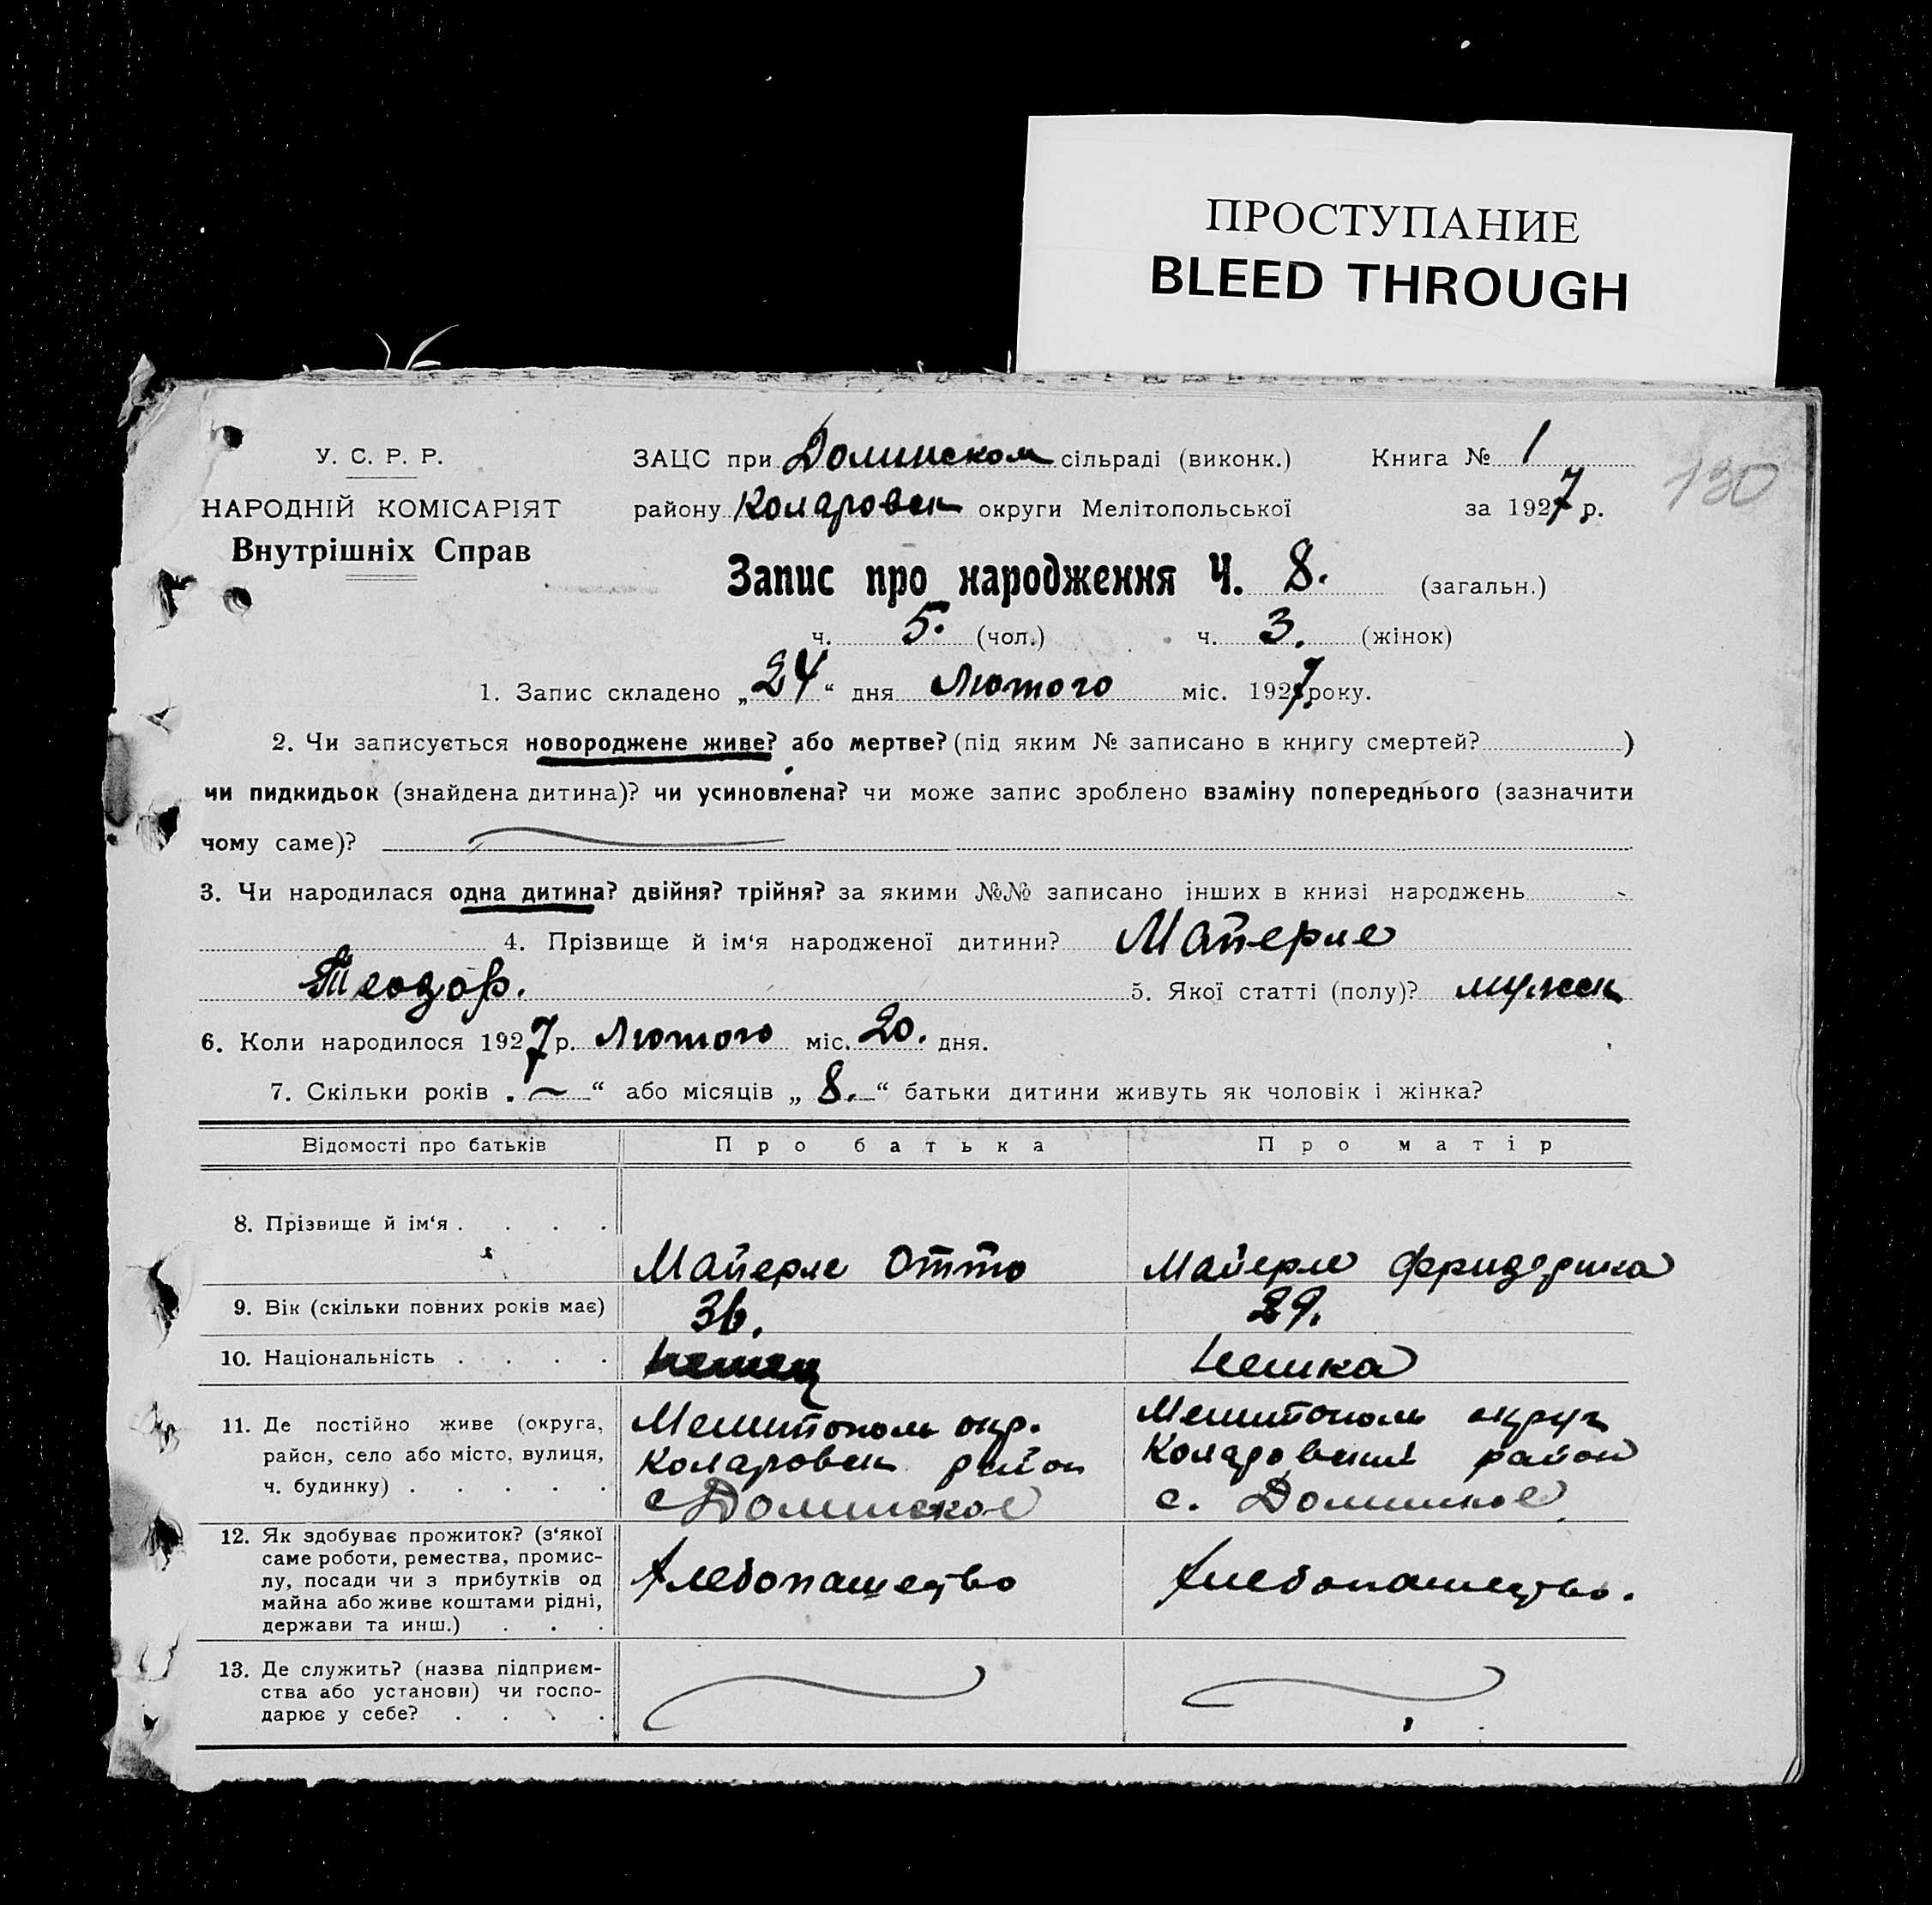 ПРОСТУПАНИЕ
BLEED THROUGH
У. С. Р. Р.
НАРОДНІЙ КОМІСАРІЯТ
Внутрішніх Справ
ЗАЦС при Долинском сільраді (виконк.) Книга № 1
130
району Коларовск округи Мелітопольської за 1927 р.
Запис про народження Ч. 8. (загальн.)
ч. 5. (чол.) ч. 3. (жінок)
1. Запис складено „24“ дня Лютого міс. 1927 року.
2. Чи записується новороджене живе? або мертве? (під яким № записано в книгу смертей? )
чи пидкидьок (знайдена дитина)? чи усиновлена? чи може запис зроблено взаміну попереднього (зазначити
чому саме)?
3. Чи народилася одна дитина? двійня? трійня? за якими №№ записано інших в книзі народжень -
4. Прізвище й ім‘я народженої дитини? Майерле
Теодор. 5. Якої статті (полу)? мужск
6. Коли народилося 1927 р. Лютого міс. 20. дня.
7. Скільки років „ — “ або місяців „ 8. “ батьки дитини живуть як чоловік і жінка?
Відомості про батьків Про батька Про матір
8. Прізвище й ім‘я . . . . Майерле Отто Майерле Фридерика
9. Вік (скільки повних років має) 36. 29.
10. Національність . . . . Немец Немка
11. Де постійно живе (округа,
район, село або місто, вулиця,
ч. будинку) . . . . .
Мелитополь окр.
Коларовск район
с Долинское
Мелитополь округ
Коларовский район
с. Долинское
12. Як здобуває прожиток? (з‘якої
саме роботи, ремества, промис-
лу, посади чи з прибутків од
майна або живе коштами рідні,
держави та инш.) . . .
Хлебопашество
Хлебопашество.
13. Де служить? (назва підприєм-
ства або установи) чи госпо-
дарює у себе? . . . .